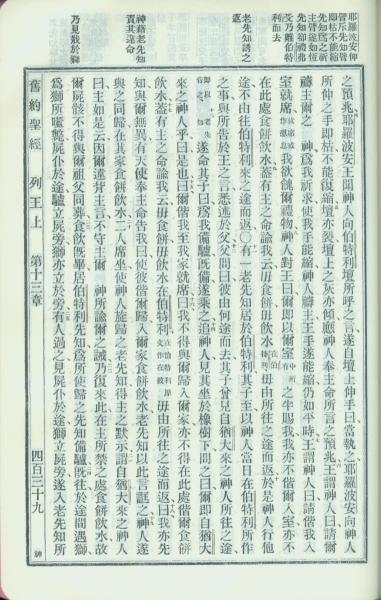 耶羅波安伸
臂斥先知臂
即枯不能縮
先知爲之求
主臂遂如恆
先知卻禮弗
受乃離伯特
利而去
老先知誘之
返
神藉老先知
責其逆命
乃見殺於獅
之預兆耶羅波安王聞神人向伯特利壇所呼之言遂自壇上伸手曰當執之耶羅波安向神人
所伸之手即枯不能復縮壇亦裂壇上之灰亦傾應神人奉主命所言之預兆王謂神人曰請爾
禱主爾之 神爲我祈求使我手能縮神人禱主王手遂能縮仍如平時王謂神人曰請偕我入
室就席我欲餽爾禮物神人對王曰爾即以爾室之半賜我我亦不偕爾入室亦不
在此處食餅飲水蓋有主之命諭我云毋食餅毋飲水毋由所往之途而返於是神人行他
途不由往伯特利來之途而返〇有一老先知居於伯特利其子至以神人當日在伯特利所作
之事與所告於王之言悉述於父父問曰彼由何途而去其子曾見自猶大來之神人所往之途
遂命其子曰爲我備驢既備遂乘之追神人見其坐於橡樹下問之曰爾即自猶大
來之神人乎曰是也曰爾偕我至我家就席曰我不得與爾歸入爾家亦不得在此處偕爾食餅
飲水蓋有主之命諭我云毋食餅毋飲水在伯特利毋由所往之途而返曰我亦先
知與爾無異有天使奉主命告我曰使彼偕爾歸入爾家食餅飲水老先知以此言誆之神人遂
與之同歸在其家食餅飲水二人席坐使神人旋歸之老先知得主之默示謂自猶大來之神人
曰主如是云因爾違背主言不守主 神所諭爾之誡乃復來此在主所禁之處食餅飲水故
爾屍骸不得與爾祖父同葬食飲既畢居伯特利先知爲所使歸之先知備驢既往於途間遇獅
爲獅所噬斃屍仆於途驢立屍旁獅亦立於旁有人過之見屍仆於途獅立屍旁遂入老先知所
舊約聖經 列王上 第十三章 四百三十九